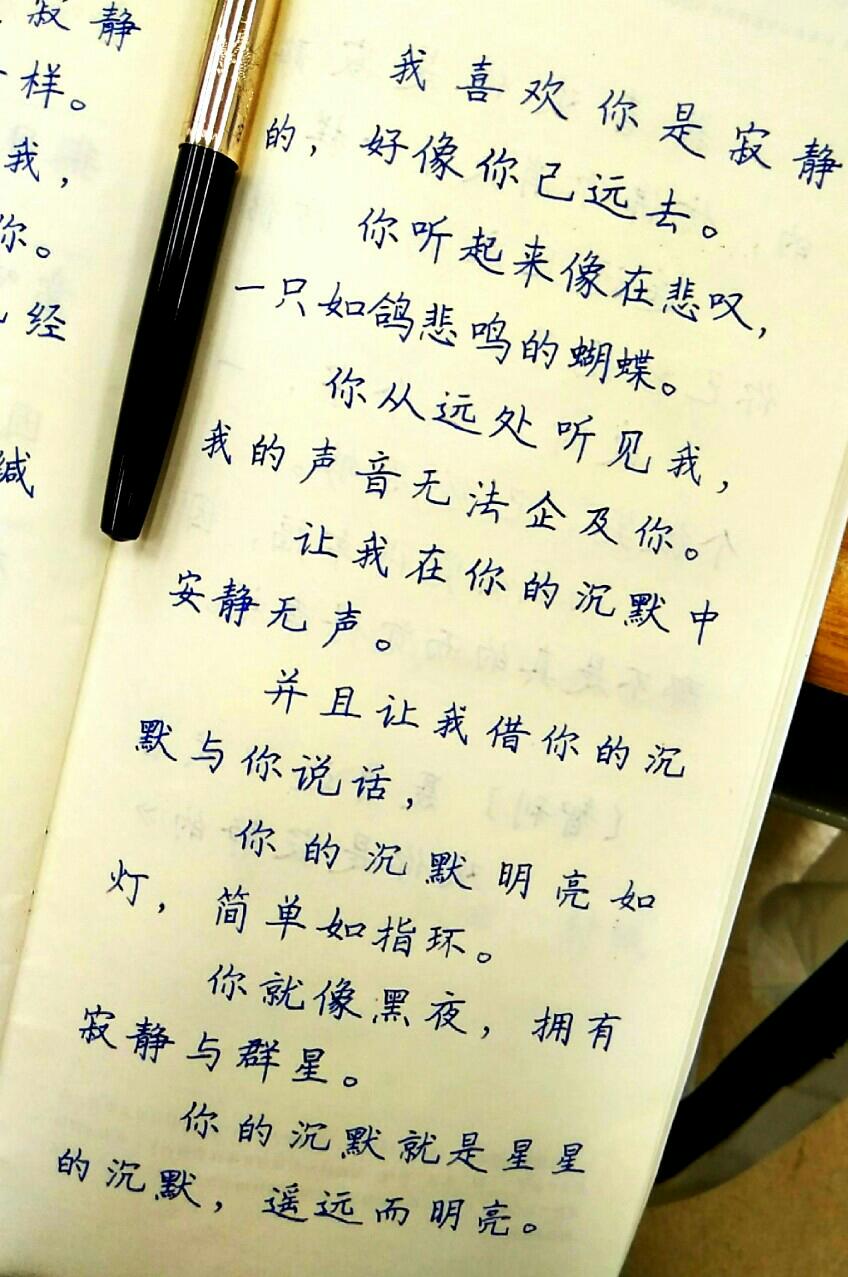 寂静
样。
我，
你。
经
缄
我喜欢你是寂静
的，好像你已远去。
你听起来像在悲叹，
一只如鸽悲鸣的蝴蝶。
你从远处听见我，
我的声音无法企及你。
让我在你的沉默中
安静无声。
并且让我借你的沉
默与你说话，
你的沉默明亮如
灯，简单如指环。
你就像黑夜，拥有
寂静与群星。
你的沉默就是星星
的沉默，遥远而明亮。